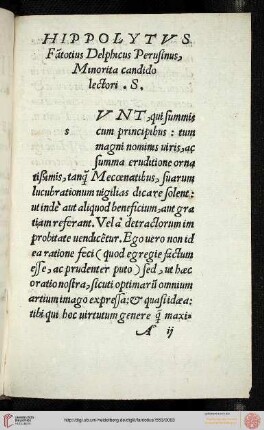 HIPPOLYTVS
Fātotius Delphicus Perusinus,
Minorita candido
lectori .S.
VNT, qui summis
s cum principibus : tum
magni nominis uiris, ac
summa eruditione orna
tissimis, tanq̃ Mecœnatibus, suarum
lucubrationum uigilias dicare solent:
ut indè aut aliquod beneficium, aut gra
tiam referant. Vel à detractorum im
probitate uendicẽtur. Ego uero non id
ea ratione feci (quod egregie factum
esse, ac prudenter puto) sed, ut hæc
oratio nostra, sicuti optimarũ omnium
artium imago expressa: & quasi idæa:
tibi qui hoc uirtutum genere q̃ maxi-
A ij
http://digi.ub.uni-heidelberg.de/diglit/fatotius1553/0003